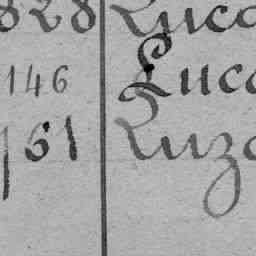 828 Luca
146 Luca
161 Luza